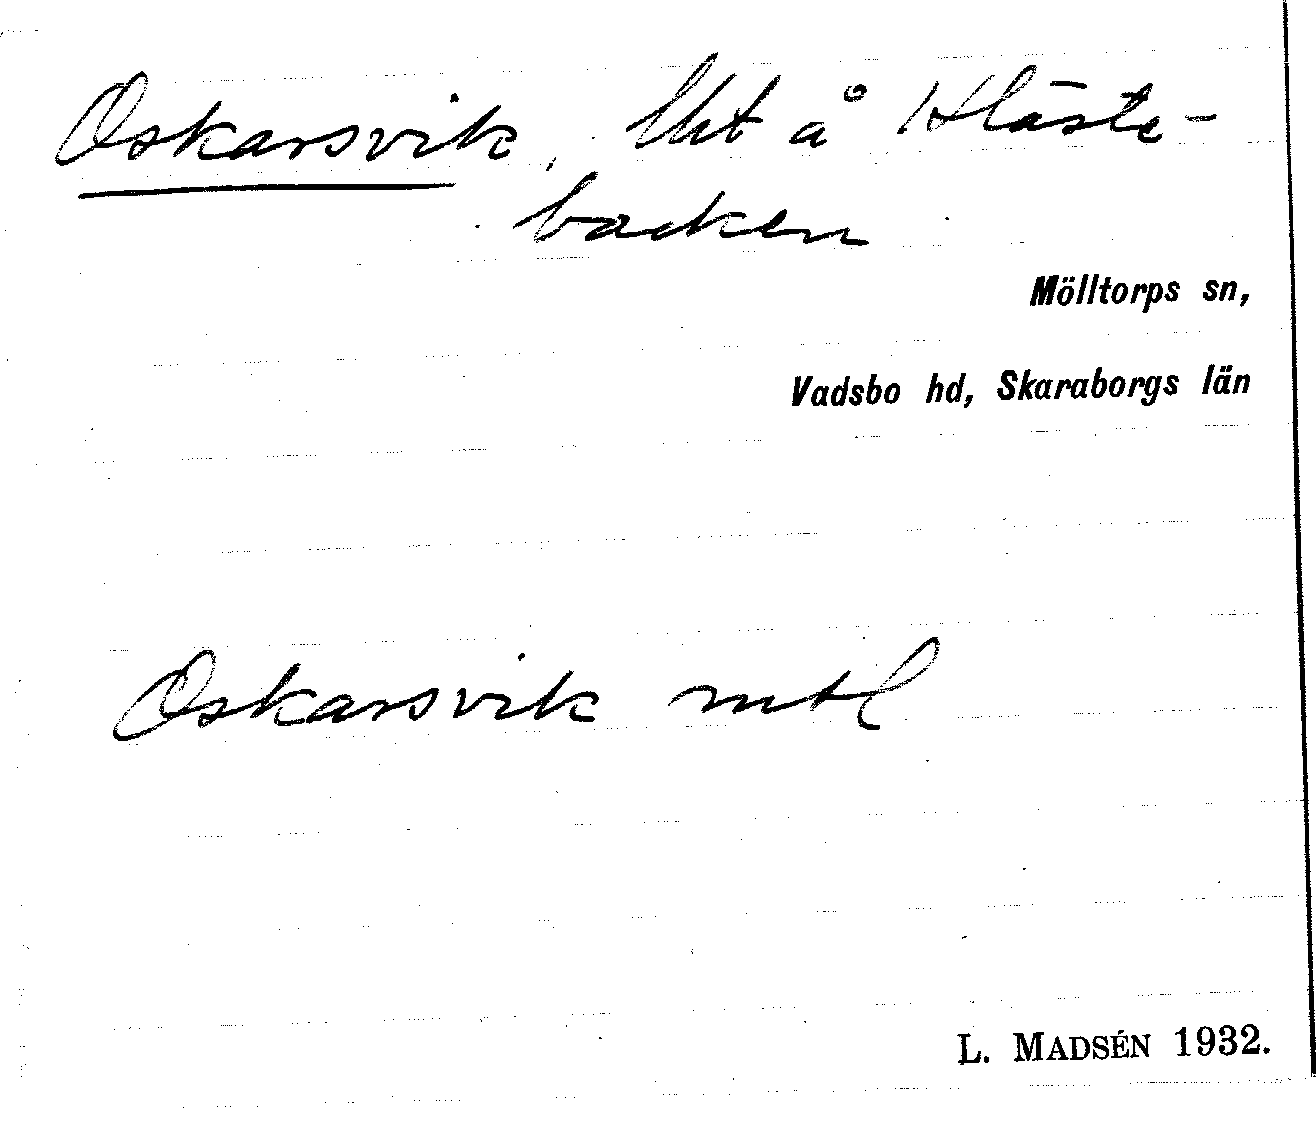 Oskarsvik, lht å Kläste-
backen
Mölltorps sn,
Vadsbo hd, Skaraborgs län
Oskarsvik mtl
L. MADSÉN 1932.